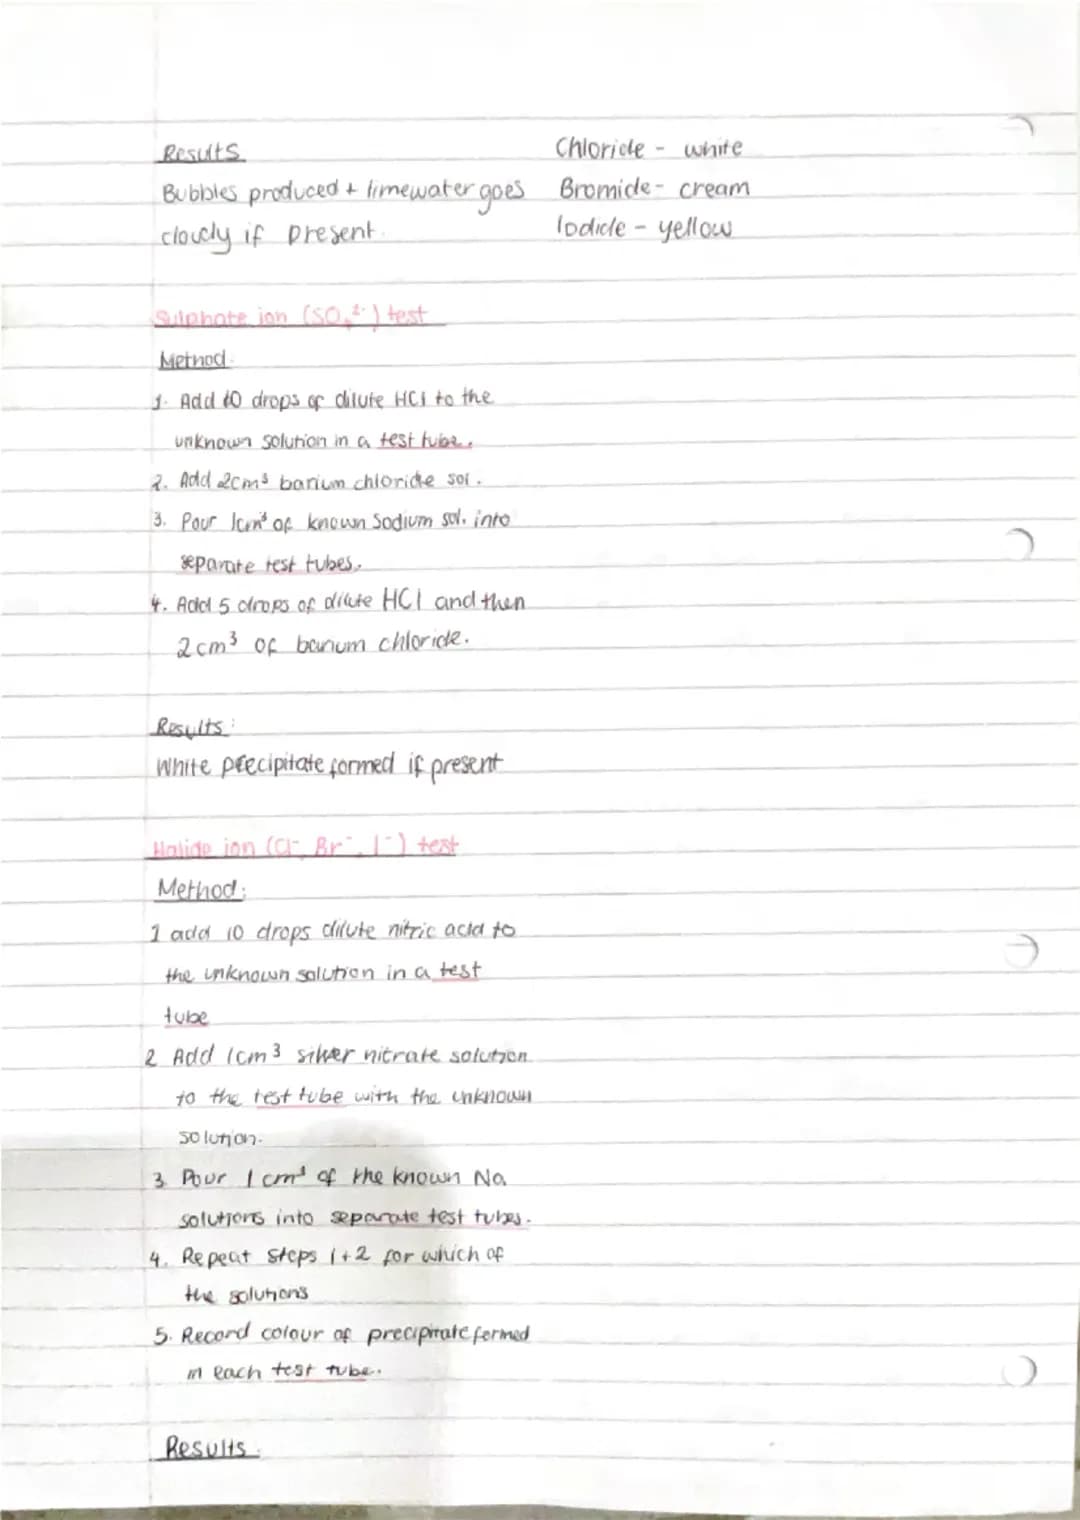 Results
Bubbles produced + limewater goes
cloudy if present.
Sulphate ion (SO₄²⁻) test
Method:
1. Add 10 drops of dilute HCl to the
unknown solution in a test tube.
2. Add 2cm³ barium chloride sol.
3. Pour 1cm³ of known Sodium sol. into
separate test tubes.
4. Add 5 drops of dilute HCl and then
2cm³ of barium chloride.
Results:
White precipitate formed if present
Halide ion (Cl⁻, Br⁻, I⁻) test
Method:
1 add 10 drops dilute nitric acid to
the unknown solution in a test
tube
2 Add 1cm³ silver nitrate solution
to the test tube with the unknown
solution.
3. Pour 1cm³ of the known Na
solutions into separate test tubes.
4. Repeat steps 1+2 for which of
the solutions
5. Record colour of precipitate formed
in each test tube.
Results:
Chloride - white
Bromide - cream
Iodide - yellow